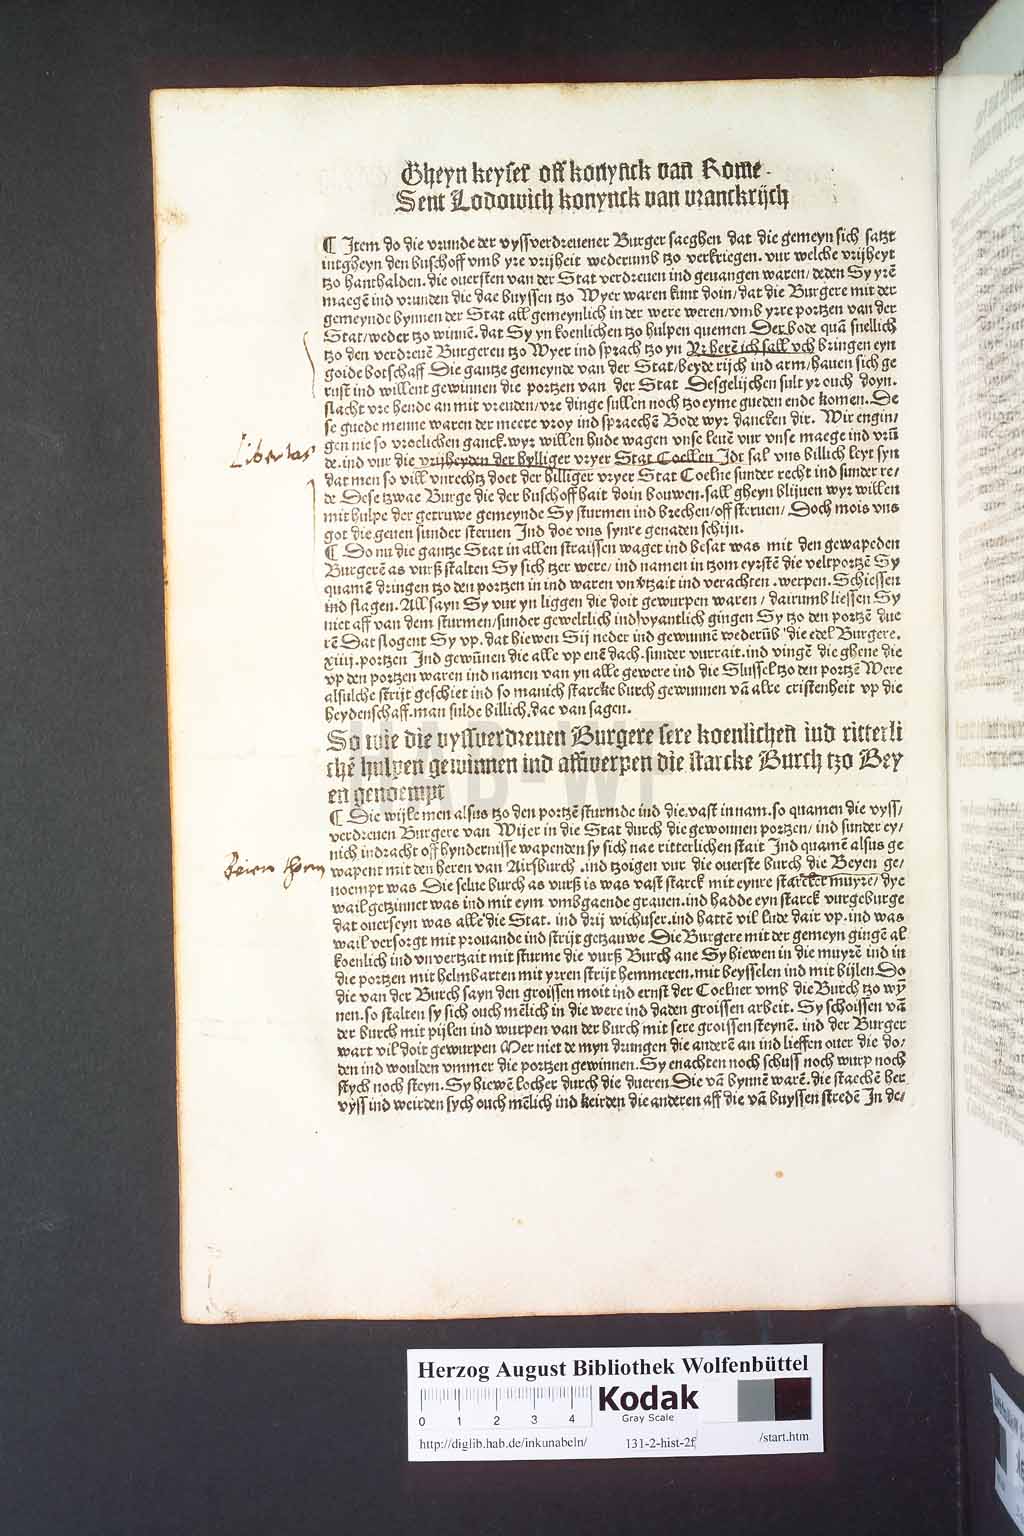 Gheyn keyser off konynck van Rome.
Sent Lodowich konynck van vranckrijch
¶ Item do die vrunde der vyssverdreuener Burger saeghen dat die gemeyn sich satzt
intgheyn den buschoff vmb yre vrijheit wederumb tzo verkriegen. vur welche vrijheyt
tzo hanthalden. die ouersten van der Stat verdreuen ind geuangen waren/ deden Sy yrē
maegē ind vrunden die dae buyssen tzo Wyer waren kunt doin/ dat die Burgere mit der
gemeynde bynnen der Stat all gemeynlich in der were weren/ vmb yrre portzen van der
Stat/ weder tzo winnē. dat Sy yn koenlichen tzo hulpen quemen Der bode quā snellich
tzo den verdreuē Burgeren tzo Wyer ind sprach tzo yn Yr herē ich sall vch bringen eyn
goide botschaff Die gantze gemeynde van der Stat/ beyde rijch ind arm/ hauen sich ge
rust ind willent gewinnen die portzen van der Stat Desgelijchen sult yr ouch doyn.
slacht vre hende an mit vreuden/ vre dinge sullen noch tzo eyme gueden ende komen. De
se guede menne waren der meere vroy ind spraechē Bode wyr dancken dir. Wir engin/
gen nie so vroelichen ganck. wyr willen hude wagen vnse leuē vur vnse maege ind vrū
Libertas
de. ind vur die vrijheyden der hylliger vryer Stat Coellen Idt sal vns billich leyt syn
dat men so vill vnrechtz doet der hilliger vryer Stat Coelne sunder recht ind sunder re/
de Dese tzwae Burge die der buschoff hait doin bouwen. sall gheyn blijuen wyr willen
mit hulpe der getruwe gemeynde Sy sturmen ind brechen/ off steruen/ Doch mois vns
got die genen sunder steruen Ind doe vns synre genaden schijn.
¶ Do nu die gantze Stat in allen straissen waget ind besat was mit den gewapeden
Burgerē as vurß stalten Sy sich tzer were/ ind namen in tzom eyrstē die veltportzē Sy
quamē dringen tzo den portzen in ind waren vnvtzait ind verachten. werpen. Schiessen
ind slagen. All sayn Sy vur yn liggen die doit gewurpen waren/ dairumb liessen Sy
niet aff van dem sturmen/ sunder geweltlich ind vyantlich gingen Sy tzo den portzē due
rē Dat slogent Sy vp. dat hiewen Sij neder ind gewunnē wederūb die edel Burgere.
xiiij. portzen Ind gewūnen die alle vp enē dach. sunder vurrait. ind vingē die ghene die
vp den portzen waren ind namen van yn alle gewere ind die Slussel tzo den portzē Were
alsulche strijt geschiet ind so manich starcke burch gewunnen vā alre cristenheit vp die
heydenschaff. man sulde billich. dae van sagen.
So wie die vyssverdreuen Burgere sere koenlichen ind ritterli
chē hulpen gewinnen ind affwerpen die starcke Burch tzo Bey
en genoempt
¶ Die wijle men alsus tzo den portzē sturmde ind die. vast innam. so quamen die vyss/
verdreuen Burgere van Wijer in die Stat durch die gewonnen portzen/ ind sunder ey/
nich indracht off hyndernisse wapenden sy sich nae ritterlichen stait Ind quamē alsus ge
Beien thorn
wapent mit den heren van Airsburch. ind tzoigen vur die ouerste burch die Beyen ge/
noempt was Die selue burch as vurß is was vast starck mit eynre starcker muyre/ dye
wail getzinnet was ind mit eym vmbgaende grauen. ind hadde eyn starck vurgeburge
dat ouerseyn was alle die Stat. ind drij wichuser. ind hattē vil lude dair vp. ind was
wail versorgt mit prouande ind strijt getzauwe Die Burgere mit der gemeyn gingē al
koenlich ind vnvertzait mit sturme die vurß Burch ane Sy hiewen in die muyrē ind in
die portzen mit helmbarten mit yrren strijt hemmeren. mit beysselen ind mit bijlen. Do
die van der Burch sayn den groissen moit ind ernst der Coelner vmb die Burch tzo wȳ
nen. so stalten sy sich ouch mēlich in die were ind daden groissen arbeit. Sy schoissen vā
der burch mit pijlen ind wurpen van der burch mit sere groissen steynē. ind der Burger
wart vil doit gewurpen Mer niet de myn drungen die anderē an ind lieffen ouer die do/
den ind woulden vmmer die portzen gewinnen. Sy enachten noch schuss noch wurp noch
stych noch steyn. Sy hiewē locher durch die dueren Die vā bynnē warē. die staechē her
vyss ind weirden sych ouch mēlich ind keirden die anderen aff die vā buyssen stredē In de/
Herzog August Bibliothek Wolfenbüttel
0 1 2 3 4
Kodak
Gray Scale
http://diglib.hab.de/inkunabeln/ 131-2-hist-2f /start.htm
HAB-WF